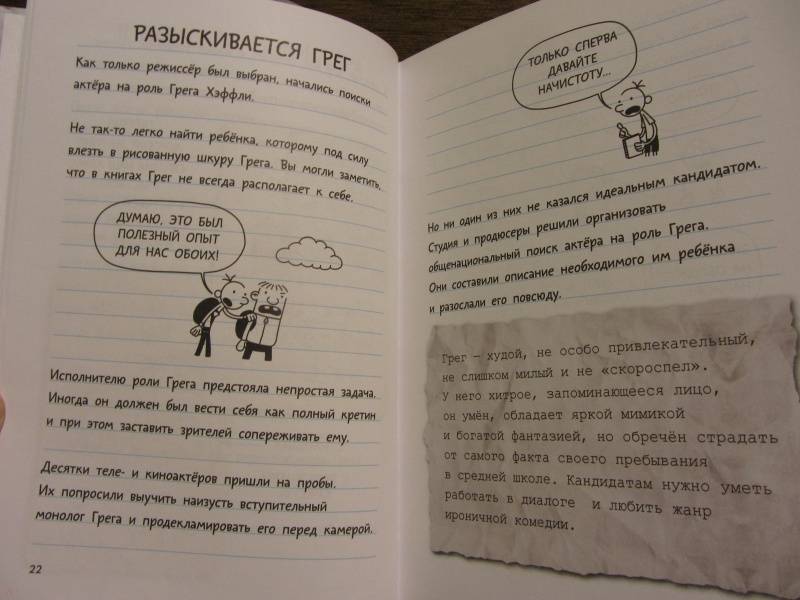 РАЗЫСКИВАЕТСЯ ГРЕГ
Как только режиссёр был выбран, начались поиски
актёра на роль Грега Хэффли.
Не так-то легко найти ребёнка, которому под силу
влезть в рисованную шкуру Грега. Вы могли заметить,
что в книгах Грег не всегда располагает к себе.
ДУМАЮ, ЭТО БЫЛ
ПОЛЕЗНЫЙ ОПЫТ
ДЛЯ НАС ОБОИХ!
Исполнителю роли Грега предстояла непростая задача.
Иногда он должен был вести себя как полный кретин
и при этом заставить зрителей сопереживать ему.
Десятки теле- и киноактёров пришли на пробы.
Их попросили выучить наизусть вступительный
монолог Грега и продекламировать его перед камерой.
22
ТОЛЬКО СПЕРВА
ДАВАЙТЕ
НАЧИСТОТУ...
Но ни один из них не казался идеальным кандидатом.
Студия и продюсеры решили организовать
общенациональный поиск актёра на роль Грега.
Они составили описание необходимого им ребёнка
и разослали его повсюду.
Грег – худой, не особо привлекательный,
не слишком милый и не «скороспел».
У него хитрое, запоминающееся лицо,
он умён, обладает яркой мимикой
и богатой фантазией, но обречён страдать
от самого факта своего пребывания
в средней школе. Кандидатам нужно уметь
работать в диалоге и любить жанр
ироничной комедии.